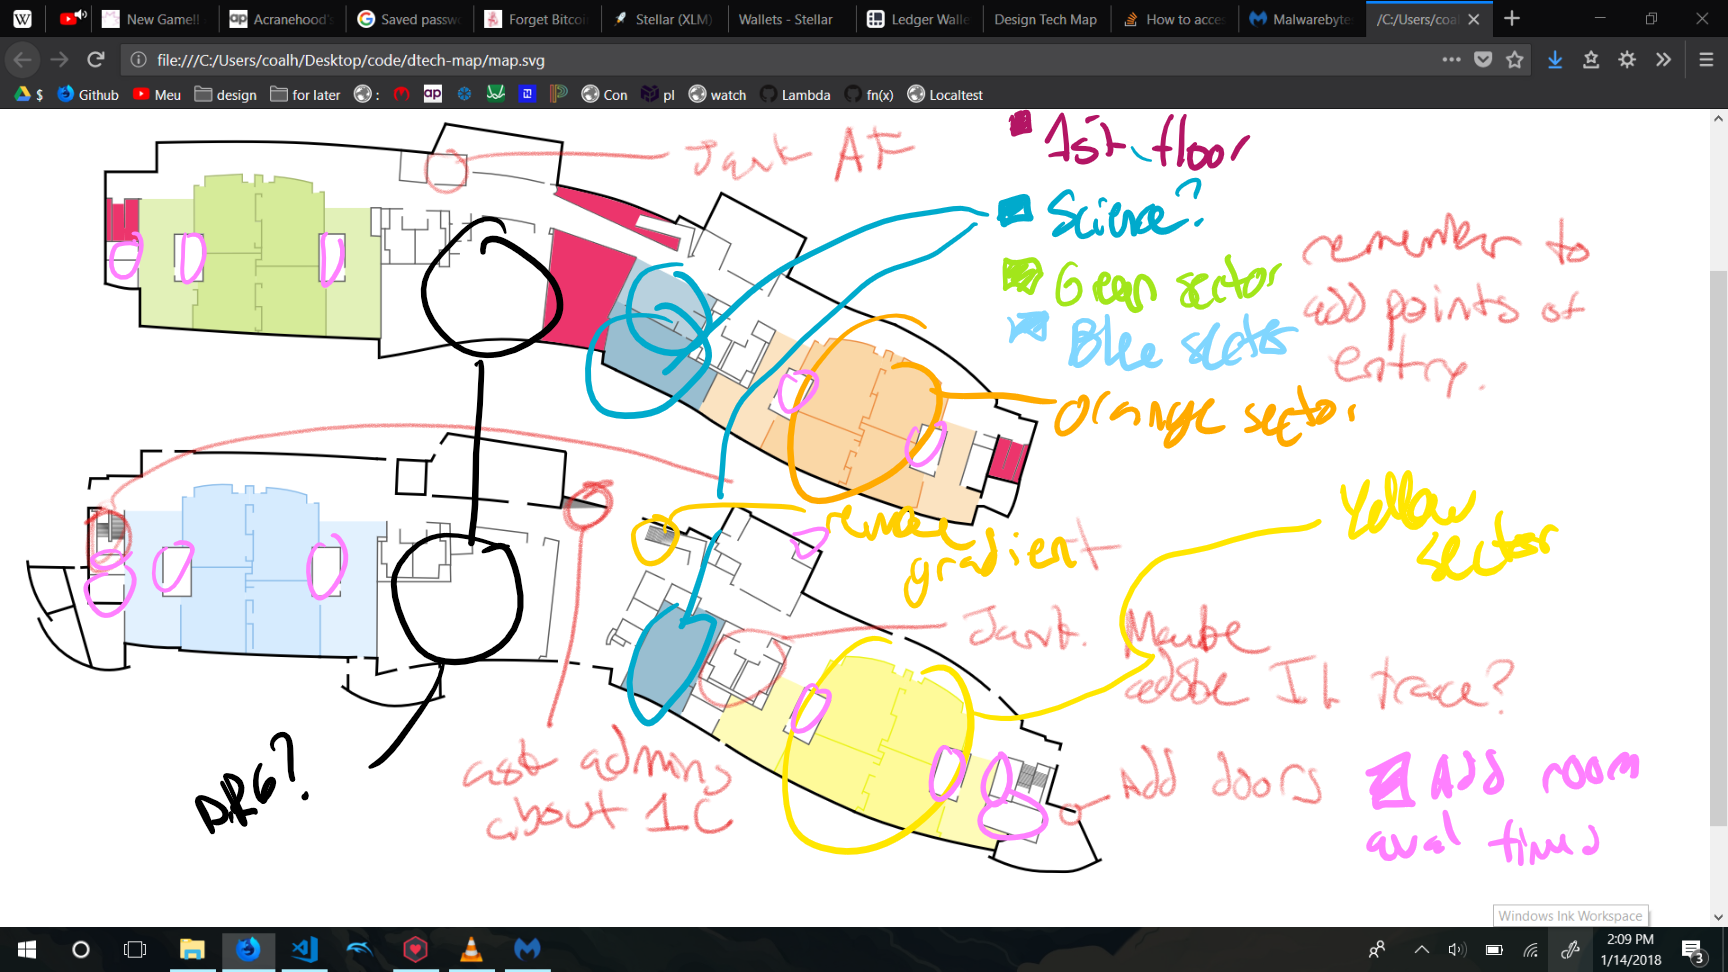 New Game!!
Acranehood's
Saved passwo
Forget Bitcoin
Stellar (XLM)
Wallets - Stellar
Ledger Walle
Design Tech Map
How to acces
Malwarebyte
/C:/Users/coalh
file:///C:/Users/coalh/Desktop/code/dtech-map/map.svg
$
Github
Meu
design
for later
:
ap
Con
pl
watch
Lambda
fn(x)
Localtest
1st floor
Science?
Green sector
Blue sector
Orange sector
remember to
add points of
entry.
remove
gradient
Yellow
sector
Maybe
adobe Il trace?
DRG?
ask admins
about 1C
Add doors
Add room
aval times
Windows Ink Workspace
2:09 PM
1/14/2018
3